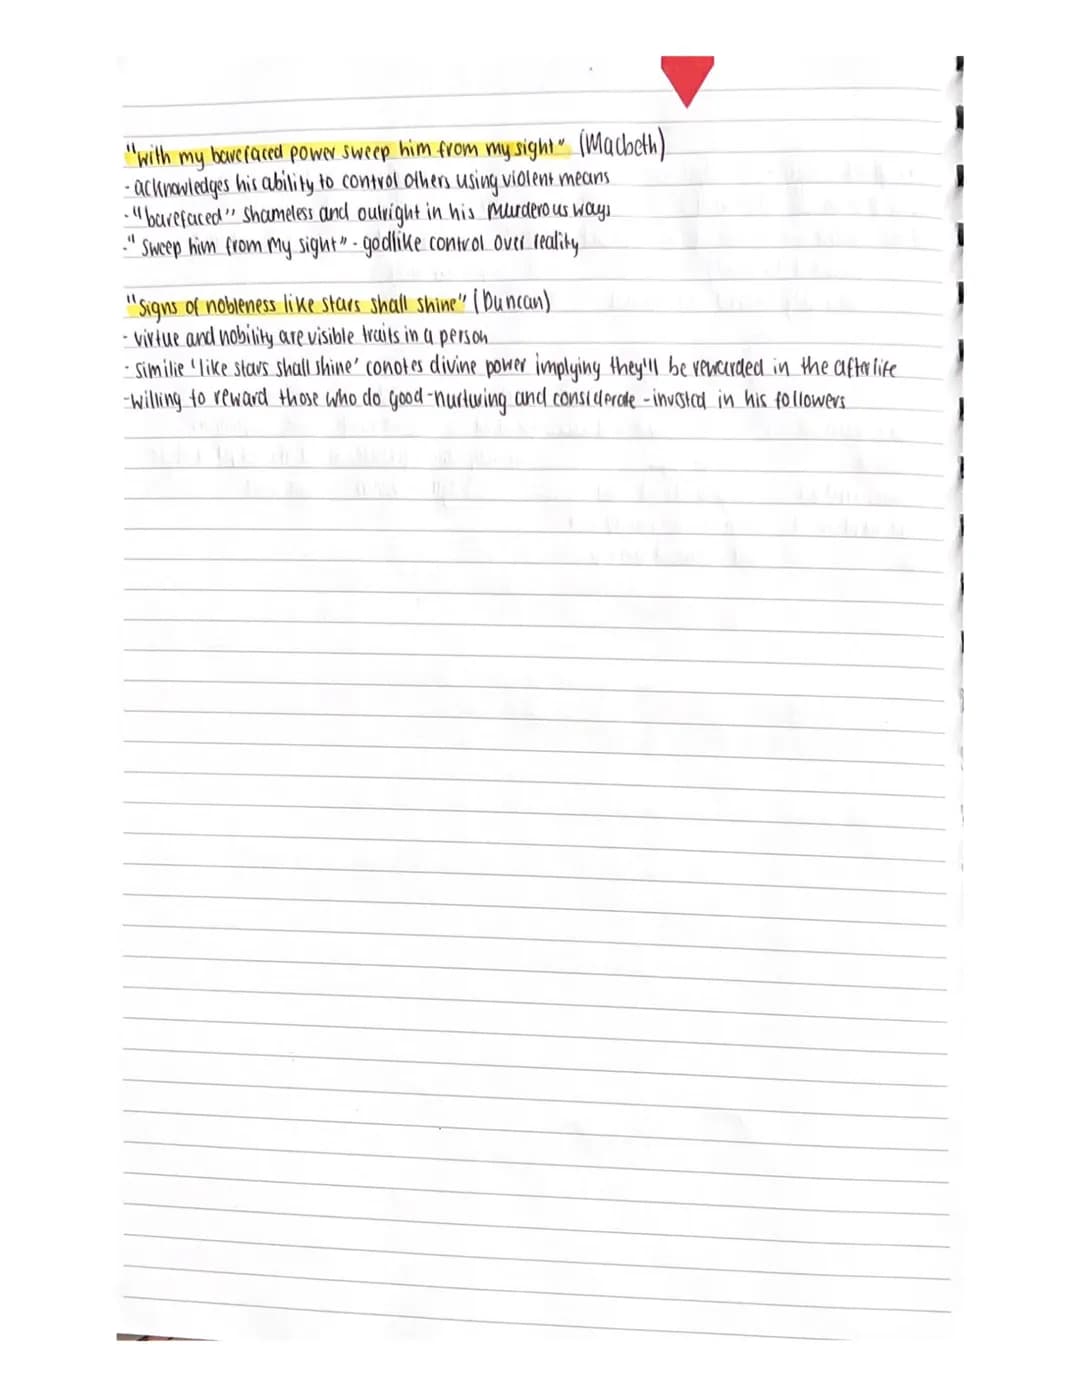 "with my barefaced power sweep him from my sight" (Macbeth)
- acknowledges his ability to control others using violent means
- "barefaced" shameless and outright in his murderous ways
- "Sweep him from my sight" - godlike control over reality
"Signs of nobleness like stars shall shine" (Duncan)
- virtue and nobility are visible traits in a person
- Similie 'like stars shall shine' conotes divine power implying they'll be rewarded in the afterlife
- willing to reward those who do good - nurturing and considerate - invested in his followers